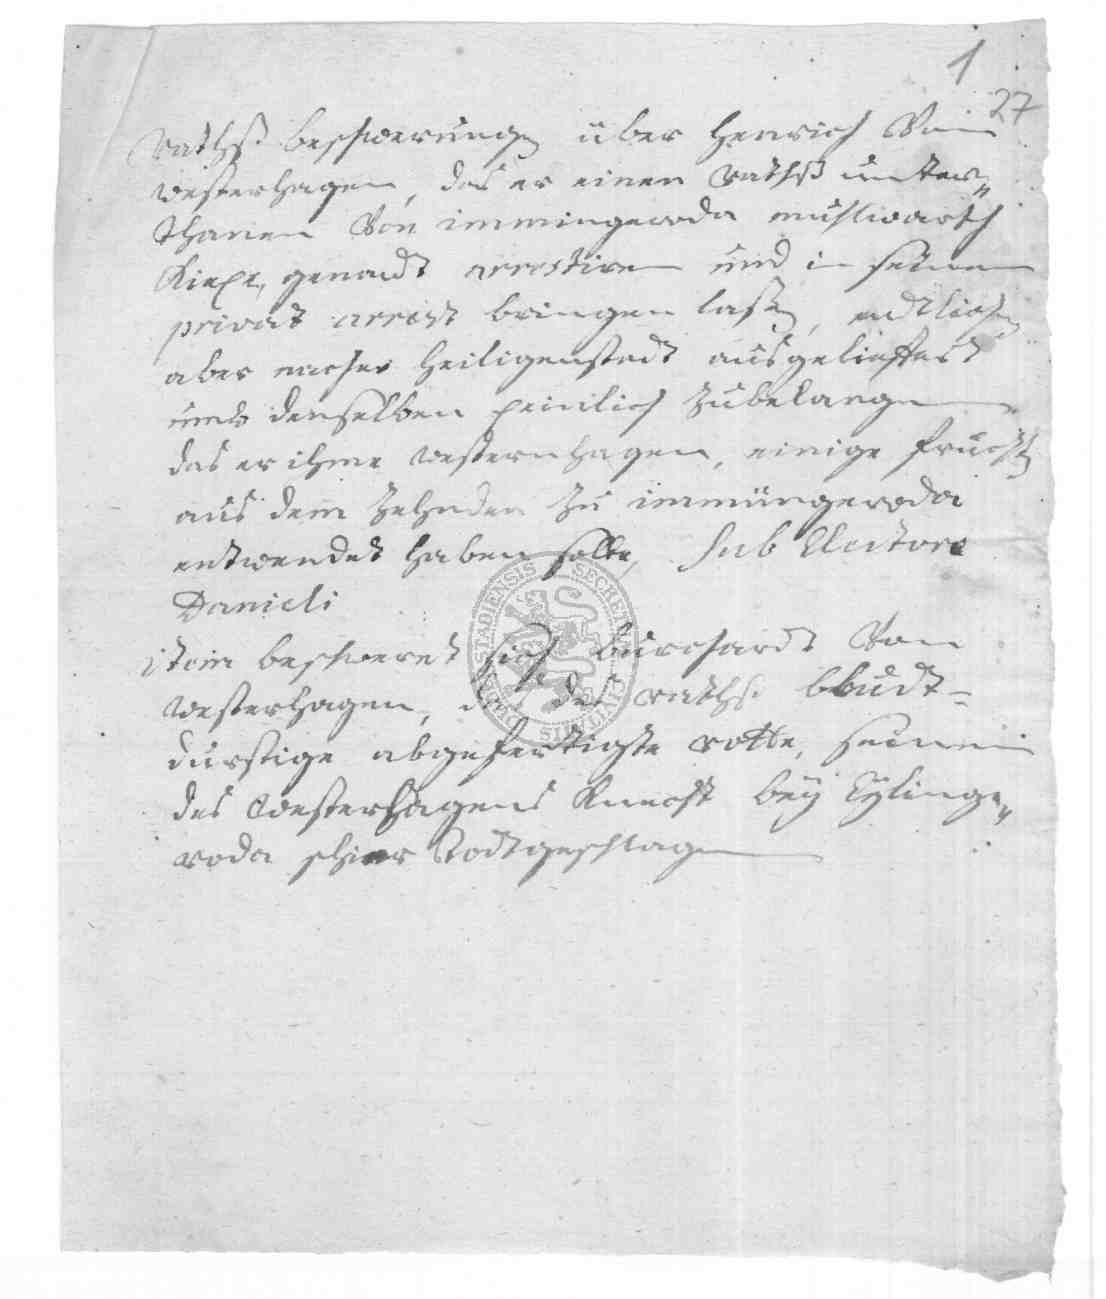 1
27
Raths beschwerung über Henrich Von
Westerhagen, das er einen Raths unter„
thanen Von immingeroda
genandt arrestiren und in seinen
privat arrest bringen lassen, endtlichen
aber nacher Heiligenstadt ausgelieffert
umb denselben peinlich zubelangen
das er ihme Westernhagen, einige frucht
aus dem Zehnden zu immingeroda
entwendet haben solle, sub Electore
Danieli
item beschweret sich Burchardt Von
Westerhagen, das des Raths bludt-
durstige abgefertigte rotte, seinen
des Westerhagens Knecht bey Tyslinge„
roda schier todtgeschlagen
SECRET CIVITATIS DUDERSTADIENSIS